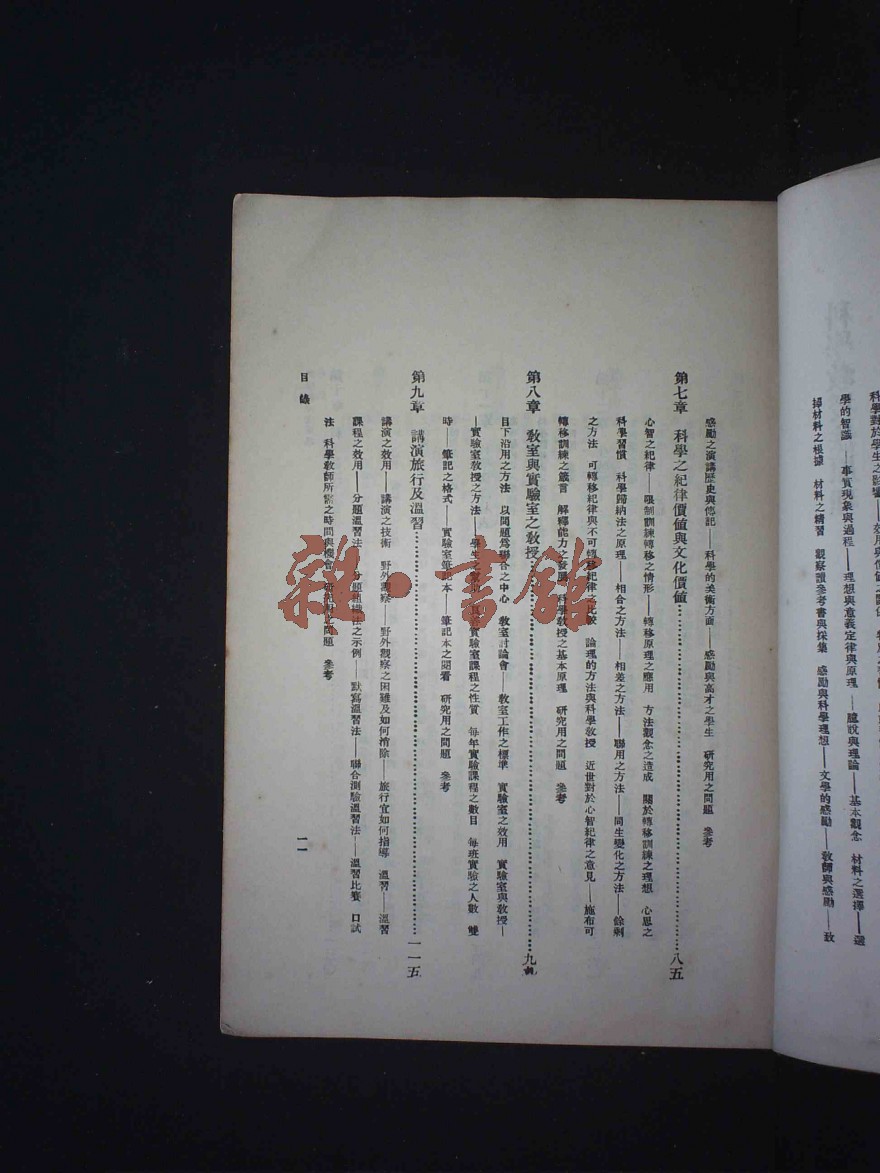 科學對於學生之影響
學的智識——事實現象與過程——理想與意義定律與原理——臆說與理論——基本觀念 材料之選擇——選
擇材料之根據 材料之補習 觀察讀參考書與採集 感勵與科學理想——文學的感勵——教師與感勵——致
感勵之演講歷史與傳記——科學的美術方面——感勵與高才之學生 研究用之問題 參考
第七章 科學之紀律價値與文化價値……八五
心智之紀律——限制訓練轉移之情形——轉移原理之應用 方法觀念之造成 關於轉移訓練之理想 心思之
科學習慣 科學歸納法之原理——相合之方法——相差之方法——聯用之方法——同生變化之方法——餘剩
之方法 可轉移紀律與不可轉移紀律之比較 論理的方法與科學教授 近世對於心智紀律之意見——施布可
轉移訓練之箴言 解釋能力之發展 科學教授之基本原理 研究用之問題 參考
第八章 敎室與實驗室之敎授……九
目下沿用之方法 以問題爲聯合之中心 敎室討論會——敎室工作之標準 實驗室之效用 實驗室與敎授—
—實驗室敎授之方法——學生之 實驗室課程之性質 每年實驗課程之數目 每班實驗之人數 雙
時——筆記之格式——實驗室筆記本——筆記本之閱看 研究用之問題 參考
第九章 講演旅行及溫習……一一五
講演之效用——講演之技術 野外觀察——野外觀察之困難及如何消除——旅行宜如何指導 溫習——溫習
課程之效用——分題溫習法——分題組織法之示例——默寫溫習法——聯合測驗溫習法——溫習比賽 口試
法 科學敎師所需之時間與機會 研究用之問題 參考
目錄
一一
雜·書館